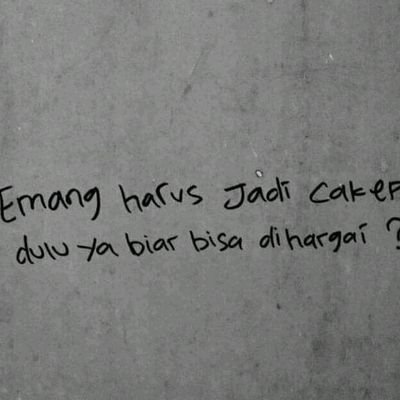 Emang harus Jadi cakep
dulu ya biar bisa dihargai ?